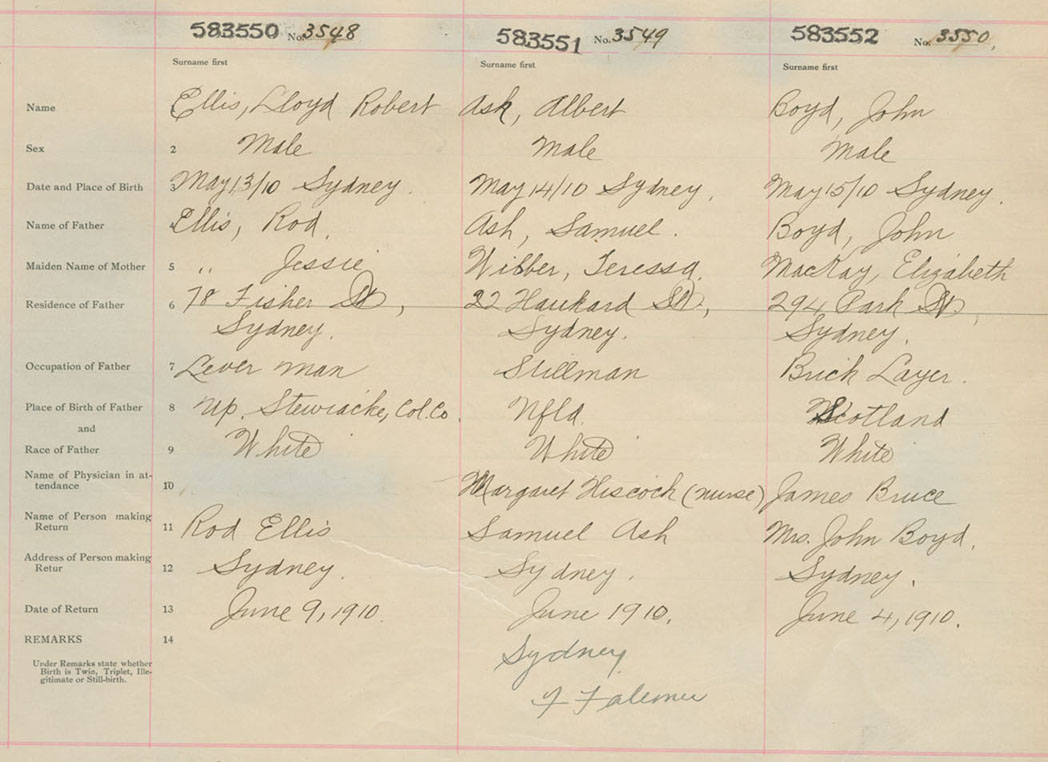 583550 No. 3548 583551 No. 3549 583552 No. 3550.
Surname first Surname first Surname first
Name Ellis, Lloyd Robert Ash, Albert Boyd, John
Sex 2 Male Male Male
Date and Place of Birth 3 May 13/10 Sydney. May 14/10 Sydney. May 15/10 Sydney.
Name of Father 4 Ellis, Rod. Ash, Samuel. Boyd, John
Maiden Name of Mother 5 " Jessie Wibber, Teressa. MacKay, Elizabeth
Residence of Father 6 78 Fisher St, 22 St, 294 Park St,
Sydney. Sydney. Sydney.
Occupation of Father 7 Lever man Stillman Brick Layer.
Place of Birth of Father 8 Up. Stewiacke, Col. Co. Nfld. Scotland
and
Race of Father 9 White White White
Name of Physician in at-
tendance 10 Margaret Hiscock (nurse) James Bruce
Name of Person making
Return 11 Rod Ellis Samuel Ash Mrs. John Boyd.
Address of Person making
Retur 12 Sydney. Sydney. Sydney.
Date of Return 13 June 9, 1910. June 1910. June 4, 1910.
REMARKS 14
Sydney
Under Remarks state whether
Birth is Twin, Triplet, Ille-
gitimate or Still-birth.